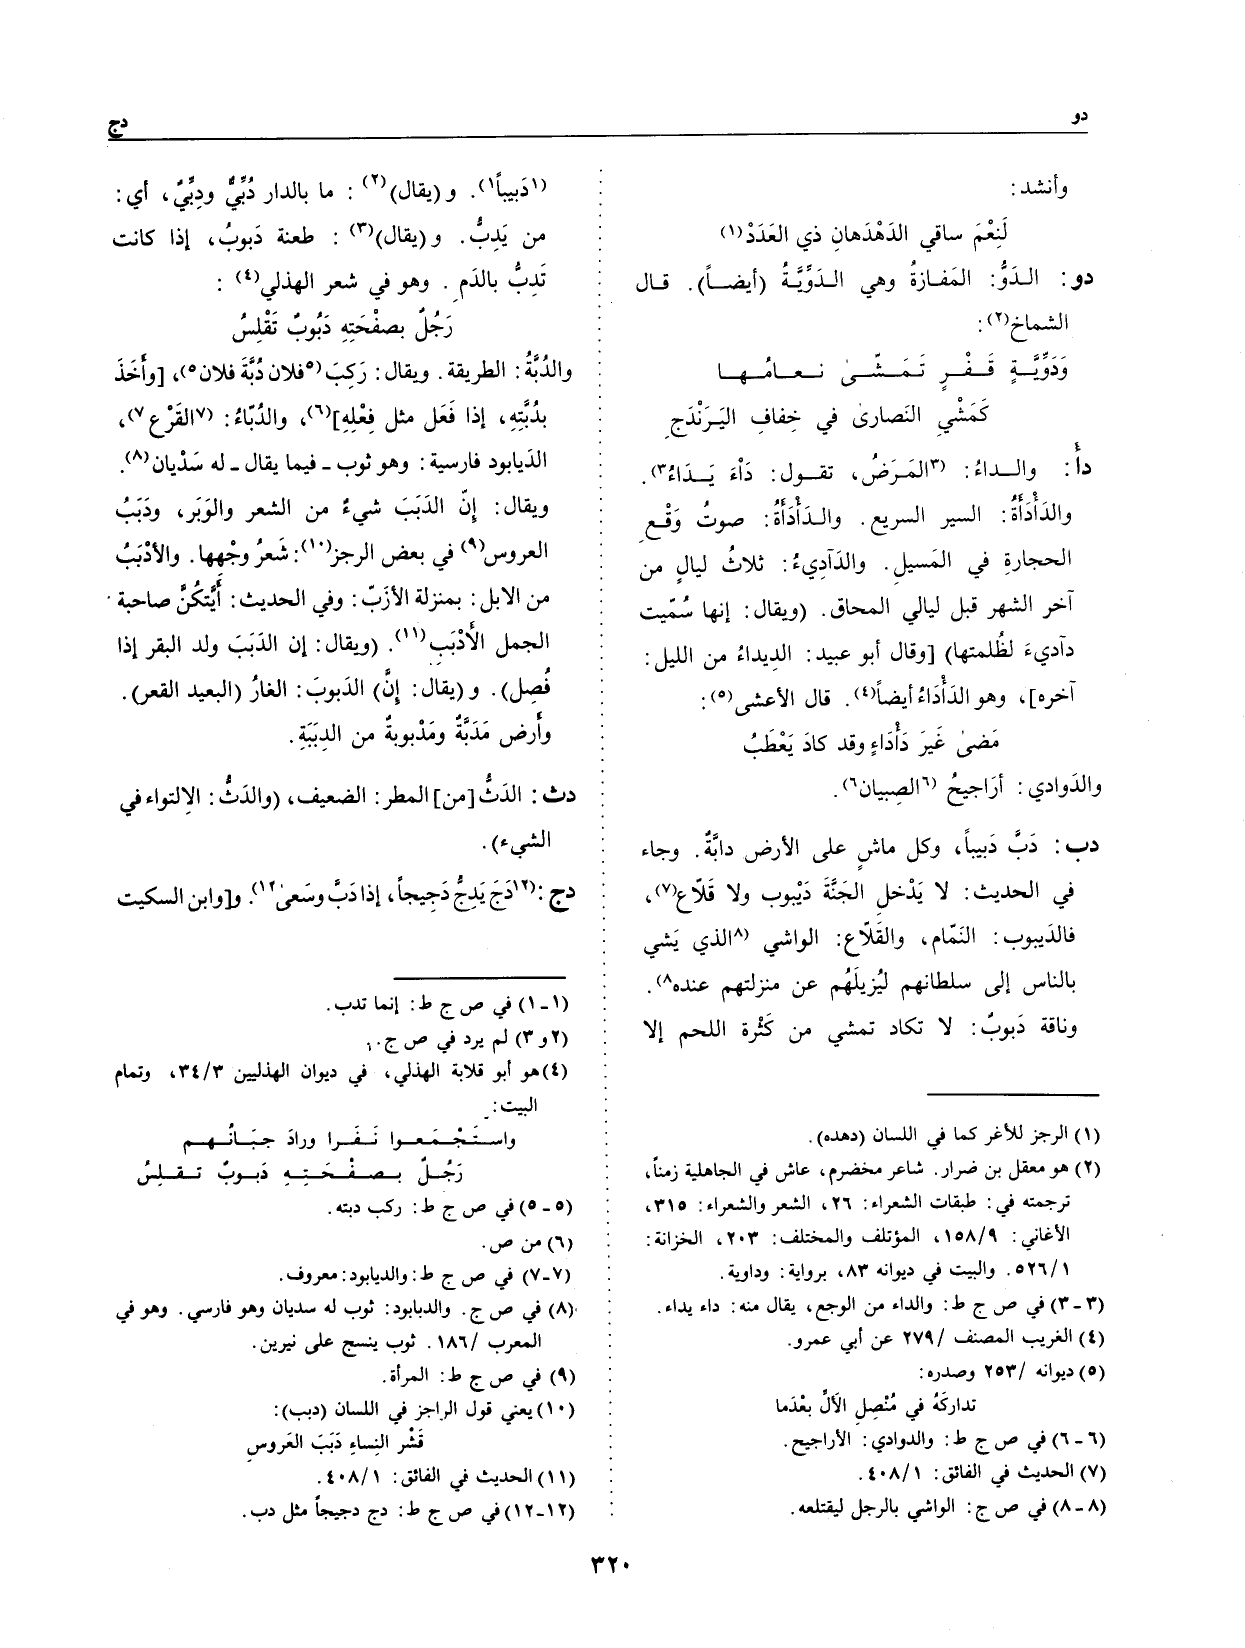 دو
دج
وأنشد:
لَنِعْمَ ساقي الدَهْدَهانِ ذي العَدَدْ(١)
دو: الـدَوُّ: المَفـازةُ وهي الـدَوِّيَّـةُ (أيضـاً). قـال
الشماخ(٢):
وَدَوِّيَّـةٍ قَـفْـرٍ تَـمَـشّـى نـعـامُـهـا
كَمَشْيِ النَصارىٰ في خِفافِ اليَرَنْدَجِ
دأ: والـداءُ: (٣المَـرَضُ، تقـول: دَاءَ يَـدَاءُ٣).
والدَأْدَأَةُ: السير السريع. والـدَأْدَأَةُ: صوتُ وَقْـعِ
الحجارةِ في المَسيلِ. والدَآدِيءُ: ثلاثُ ليالٍ من
آخر الشهر قبل ليالي المحاق. (ويقال: إنها سُمّيت
دآديءَ لظُلمتها) [وقال أبو عبيد: الدِيداءُ من الليل:
آخره]، وهو الدَأْدَاءُ أيضاً(٤). قال الأعشى(٥):
مَضىٰ غَيرَ دَأْدَاءٍ وقد كادَ يَعْطَبُ
والدَوادي: أرَاجيحُ (٦الصِبيان٦).
دب: دَبَّ دَبيباً، وكل ماشٍ على الأرض دابَّةٌ. وجاء
في الحديث: لا يَدْخل الجَنَّةَ دَيْبوب ولا قَلّاع(٧)،
فالدَيبوب: النَمّام، والقَلّاع: الواشي (٨الذي يَشي
بالناس إلى سلطانهم ليُزيلَهُم عن منزلتهم عنده٨).
وناقة دَبوبٌ: لا تكاد تمشي من كَثْرة اللحم إلا
(١) الرجز للأغر كما في اللسان (دهده).
(٢) هو معقل بن ضرار. شاعر مخضرم، عاش في الجاهلية زمناً،
ترجمته في: طبقات الشعراء: ٢٦، الشعر والشعراء: ٣١٥،
الأغاني: ١٥٨/٩، المؤتلف والمختلف: ٢٠٣، الخزانة:
٥٢٦/١. والبيت في ديوانه ٨٣، برواية: وداوية.
(٣-٣) في ص ج ط: والداء من الوجع، يقال منه: داء يداء.
(٤) الغريب المصنف /٢٧٩ عن أبي عمرو.
(٥) ديوانه /٢٥٣ وصدره:
تداركَهُ في مُنْصِلِ الألِّ بعْدَما
(٦-٦) في ص ج ط: والدوادي: الأراجيح.
(٧) الحديث في الفائق: ٤٠٨/١.
(٨-٨) في ص ج: الواشي بالرجل ليقتلعه.
(١دَبيباً١). و(يقال)(٢): ما بالدار دُبِّيٌّ ودِبِّيٌّ، أي:
من يَدِبُّ. و(يقال)(٣): طعنة دَبوبٌ، إذا كانت
تَدِبُّ بالدَمِ. وهو في شعر الهذلي(٤):
رَجُلٌ بصفْحَتِهِ دَبُوبٌ تَقْلِسُ
والدُبَّةُ: الطريقة. ويقال: رَكِبَ (٥فلان دُبَّةَ فلان٥)، [وأَخَذَ
بدُبَّتِهِ، إذا فَعَل مثل فِعْلِهِ](٦)، والدُبّاءُ: (٧القَرْع٧)،
الدَيابود فارسية: وهو ثوب ـ فيما يقال ـ له سَدْيان(٨).
ويقال: إنّ الدَبَبَ شيءٌ من الشعر والوَبَر، ودَبَبُ
العروس(٩) في بعض الرجز(١٠): شَعرُ وجْهها. والأدْبَبُ
من الابل: بمنزلة الأزَبّ: وفي الحديث: أَيَّتكُنَّ صاحبة
الجمل الأَدْبَبِ(١١). (ويقال: إن الدَبَبَ ولد البقر إذا
فُصِل). و(يقال: إنَّ) الدَبوبَ: الغارُ (البعيد القعر).
وأرض مَدَبَّةٌ ومَدْبوبةٌ من الدِبَبَةِ.
دث: الدَثُّ [من] المطر: الضعيف، (والدَثُّ: الاِلتواء في
الشيء).
دج: (١٢دَجَّ يَدِجُّ دَجيجاً، إذا دَبَّ وسَعىٰ١٢). و[ابن السكيت
(١-١) في ص ج ط: إنما تدب.
(٢ و٣) لم يرد في ص ج.
(٤) هو أبو قلابة الهذلي، في ديوان الهذليين ٣٤/٣، وتمام
البيت:
واسـتَـجْـمَـعـوا نَـفَـرا ورادَ جـبَـانُـهـم
رَجُـلٌ بـصـفْـحَـتِـهِ دَبـوبٌ تـقـلِـسُ
(٥-٥) في ص ج ط: ركب دبته.
(٦) من ص.
(٧-٧) في ص ج ط: والديابود: معروف.
(٨) في ص ج. والديابود: ثوب له سديان وهو فارسي. وهو في
المعرب /١٨٦. ثوب ينسج على نيرين.
(٩) في ص ج ط: المرأة.
(١٠) يعني قول الراجز في اللسان (دبب):
قَشْر النِساءِ دَبَبَ العَروسِ
(١١) الحديث في الفائق: ٤٠٨/١.
(١٢-١٢) في ص ج ط: دج دجيجاً مثل دب.
٣٢٠